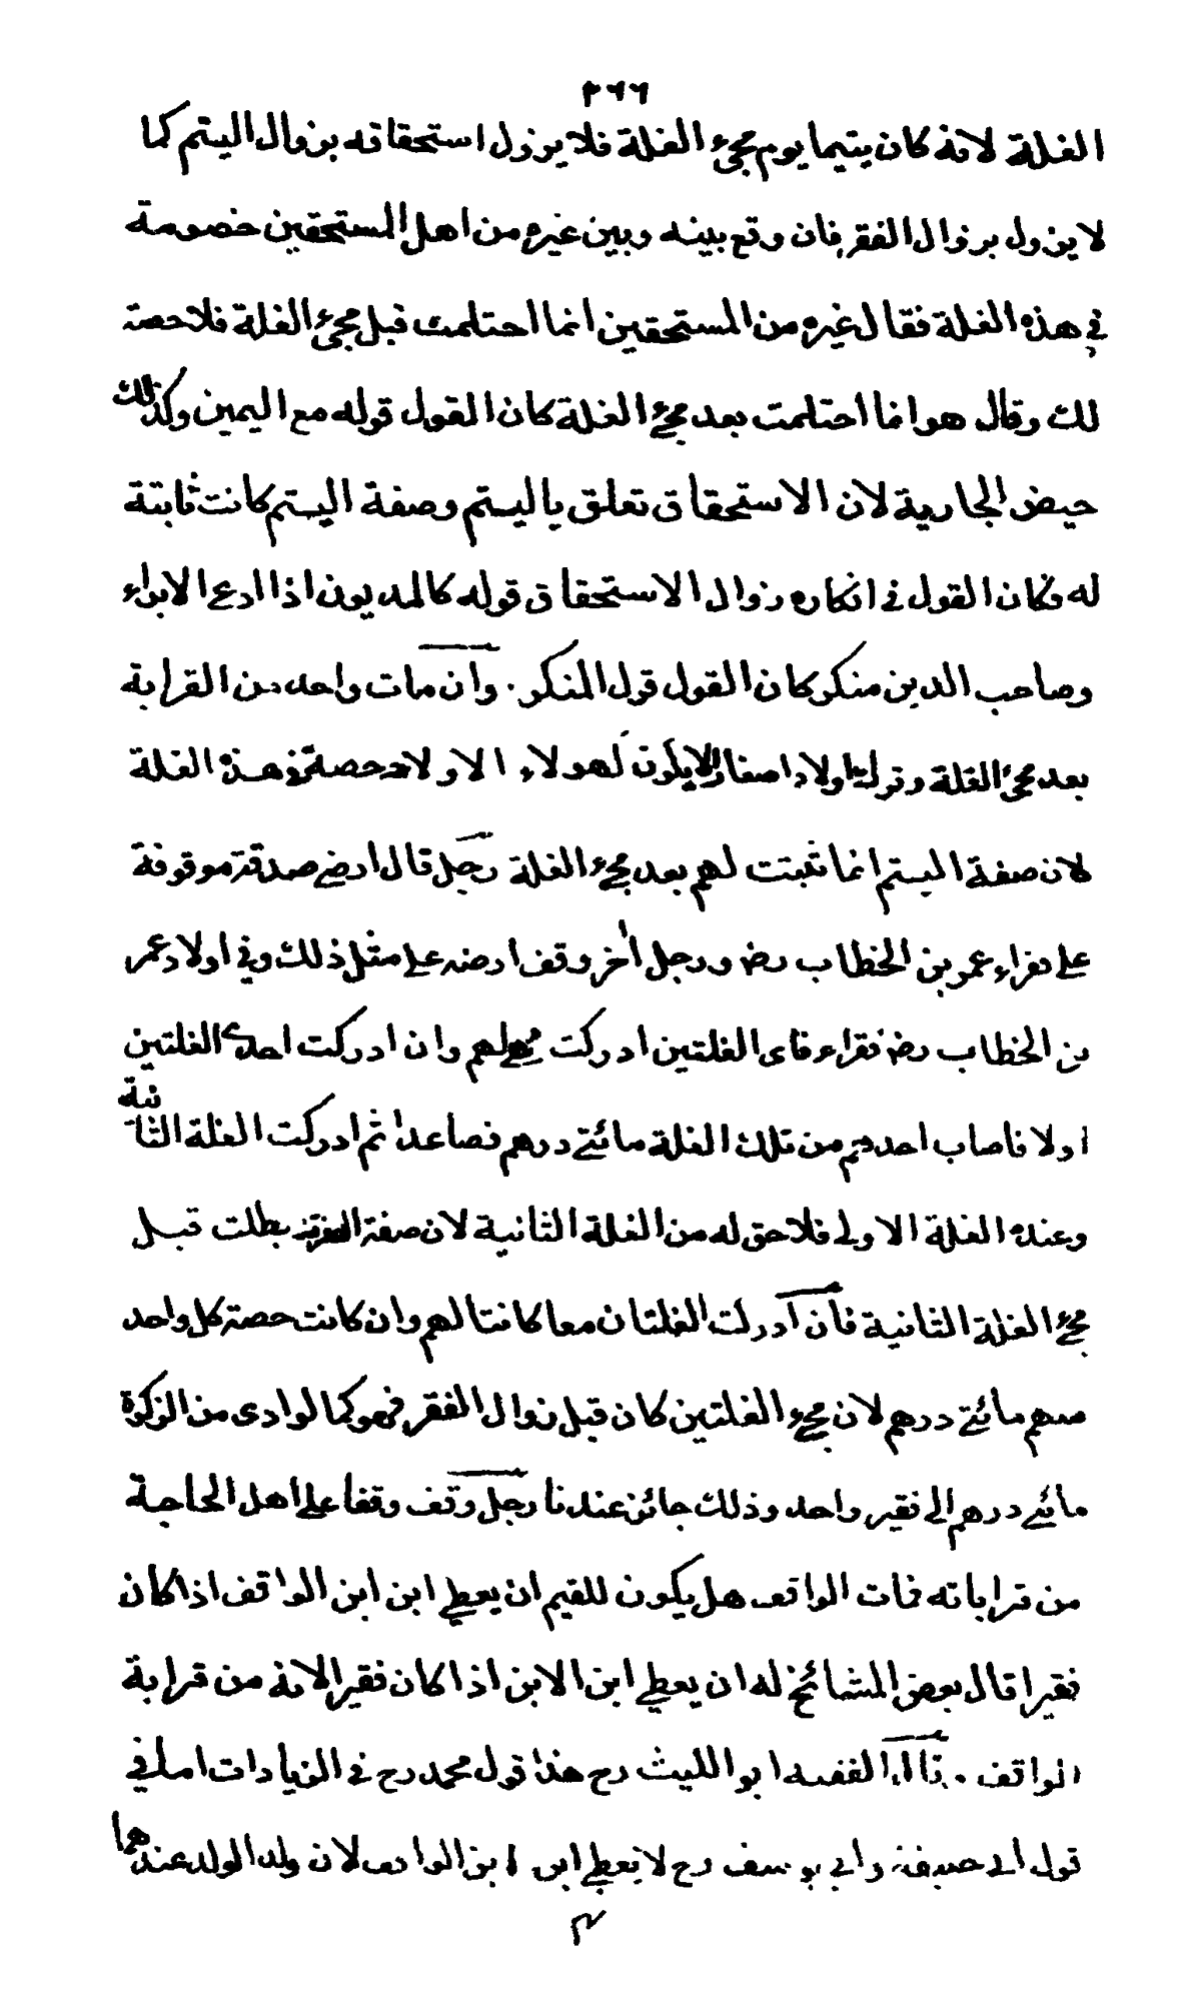 ٣٦٦
الغلة لانه كان يتيما يوم مجئ الغلة فلا يزول استحقاقه بزوال اليتم كما
لا يزول بزوال الفقر فان وقع بينه وبين غيره من اهل المستحقين خصومة
في هذه الغلة فقال غيره من المستحقين انما احتلمت قبل مجئ الغلة فلا حصة
لك وقال هو انما احتلمت بعد مجئ الغلة كان القول قوله مع اليمين وكذلك
حيض الجارية لان الاستحقاق تعلق باليتم وصفة اليتم كانت ثابتة
له فكان القول في انكاره زوال الاستحقاق قوله كالمديون اذا ادعى الابراء
وصاحب الدين منكر كان القول قول المنكر . وان مات واحد من القرابة
بعد مجئ الغلة وترك اولادا صغارا لا يكون لهولاء الاولاد حصة في هذه الغلة
لان صفة اليتم انما تثبت لهم بعد مجئ الغلة رجل قال ارضي صدقة موقوفة
على فقراء عمر بن الخطاب رض ورجل اخر وقف ارضه على مثل ذلك وفي اولاد عمر
بن الخطاب رض فقراء فاى الغلتين ادركت فهي لهم وان ادركت احدى الغلتين
اولا فاصاب احدهم من تلك الغلة مائتي درهم فصاعدا ثم ادركت الغلة الثانية
وعنده الغلة الاولى فلا حق له من الغلة الثانية لان صفة الفقر بطلت قبل
مجئ الغلة الثانية فان ادركت الغلتان معا كانتا لهم وان كانت حصة كل واحد
منهم مائتي درهم لان مجئ الغلتين كان قبل زوال الفقر فهو كما لو ادى من الزكوة
مائتي درهم الى فقير واحد وذلك جائز عندنا رجل وقف وقفا على اهل الحاجة
من قراباته فمات الواقف هل يكون للقيم ان يعطي ابن ابن الواقف اذا كان
فقيرا قال بعض المشائخ له ان يعطي ابن الابن اذا كان فقيرا لانه من قرابة
الواقف . قال الفقيه ابو الليث رح هذا قول محمد رح في الزيادات اما في
قول ابي حنيفة وابي يوسف رح لا يعطي ابن ابن الواقف لان ولد الولد عندهما